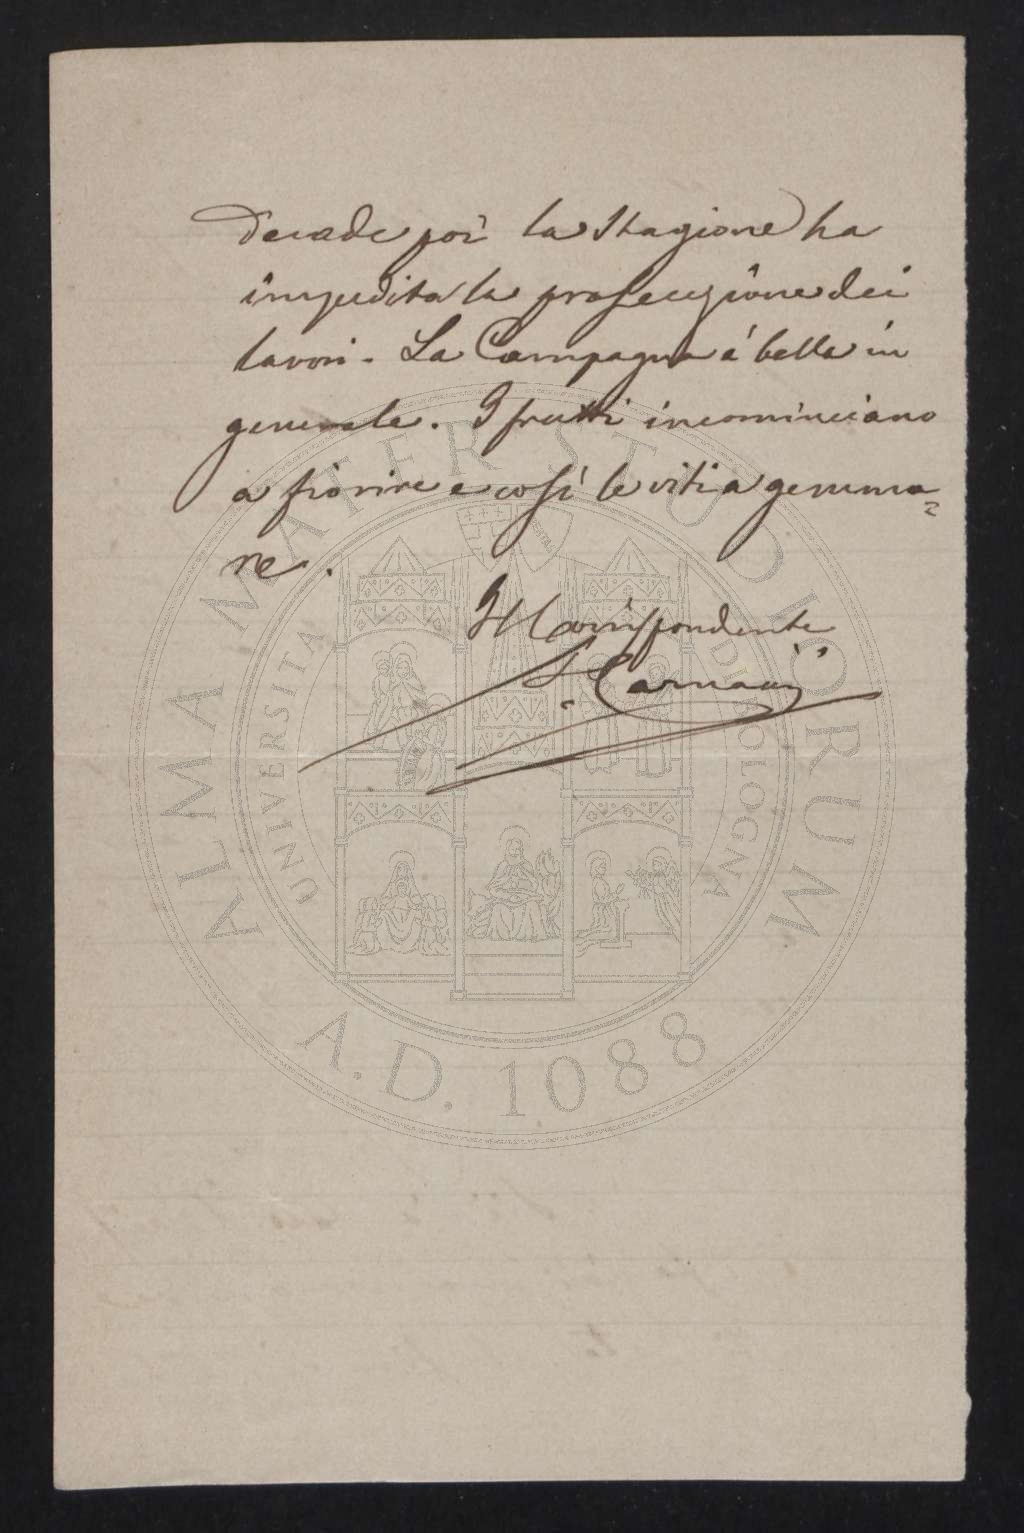 decade poi la Stagione ha
impedita la prosecuzione dei
lavori. La Campagna é bella in
generale. I frutti incominciano
a fiorire e così le viti a gemma=
re.
Il Corrispondente
ALMA MATER STUDIORUM
UNIVERSITA DI BOLOGNA
A.D. 1088